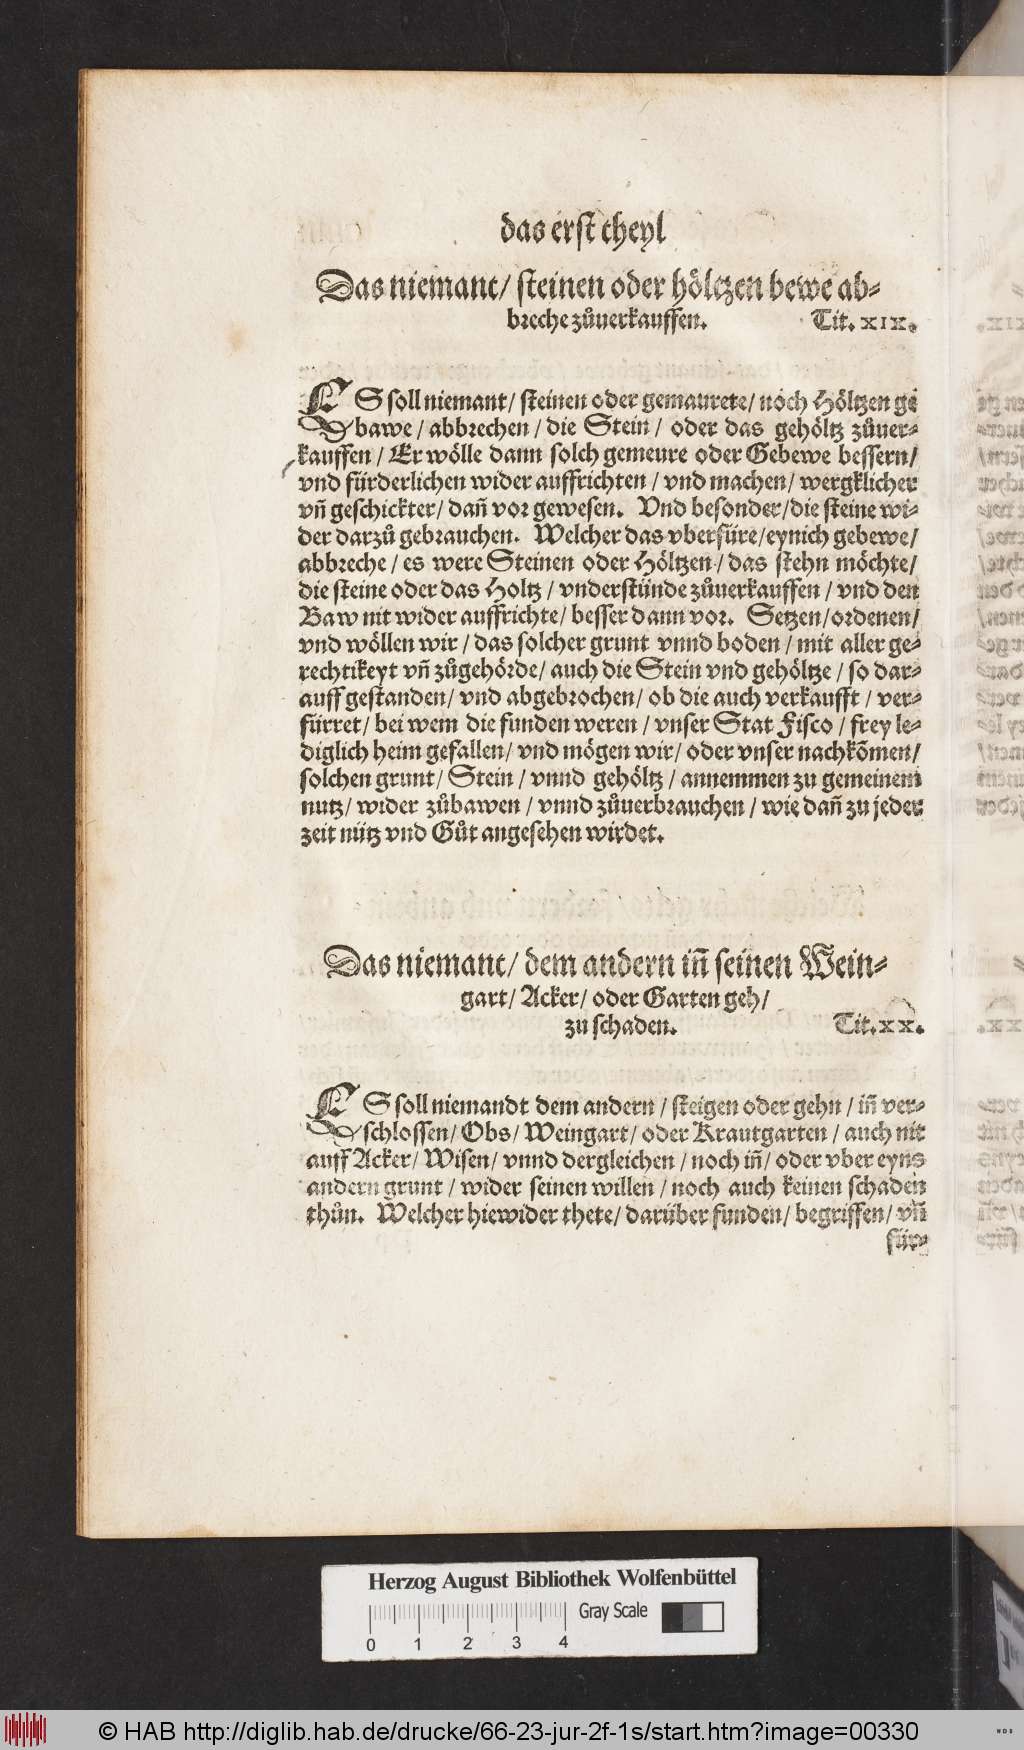 das erst theyl
Das niemant/ steinen oder höltzen bewe ab⸗
breche zůuerkauffen. Tit. XIX.
ES soll niemant/ steinen oder gemaurete/ noch Höltzen ge
bawe / abbrechen / die Stein / oder das gehöltz zůuer⸗
kauffen / Er wölle dann solch gemeure oder Gebewe bessern/
vnd fürderlichen wider auffrichten / vnd machen/ wergklicher
vñ geschickter/ dañ vor gewesen. Vnd besonder/die steine wi⸗
der darzů gebrauchen. Welcher das vberfüre/eynich gebewe/
abbreche / es were Steinen oder Höltzen / das stehn möchte/
die steine oder das Holtz / vnderstünde zůuerkauffen / vnd den
Baw nit wider auffrichte/ besser dann vor. Setzen/ordenen/
vnd wöllen wir / das solcher grunt vnnd boden / mit aller ge⸗
rechtikeyt vñ zůgehörde/ auch die Stein vnd gehöltze / so dar⸗
auff gestanden/ vnd abgebrochen/ ob die auch verkaufft / ver⸗
fürret/ bei wem die funden weren / vnser Stat Fisco / frey le⸗
diglich heim gefallen/ vnd mögen wir/ oder vnser nachkõmen/
solchen grunt/ Stein / vnnd gehöltz / annemmen zu gemeinem
nutz/ wider zůbawen / vnnd zůuerbrauchen / wie dañ zu jeder
zeit nütz vnd Gůt angesehen wirdet.
Das niemant/ dem andern iñ seinen Wein⸗
gart/ Acker/ oder Garten geh/
zu schaden. Tit. XX.
ES soll niemandt dem andern / steigen oder gehn / iñ ver⸗
schlossen/ Obs/ Weingart/ oder Krautgarten / auch nit
auff Acker/ Wisen/ vnnd dergleichen / noch iñ/ oder vber eyns
andern grunt / wider seinen willen / noch auch keinen schaden
thůn. Welcher hiewider thete/ darüber funden/ begriffen/ vñ
für⸗
Herzog August Bibliothek Wolfenbüttel
Gray Scale
0 1 2 3 4
© HAB http://diglib.hab.de/drucke/66-23-jur-2f-1s/start.htm?image=00330